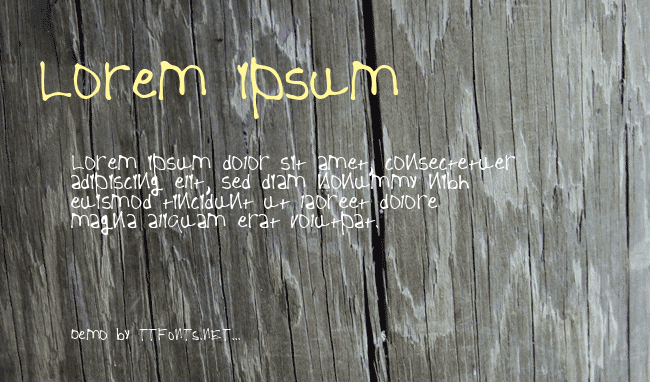 Lorem ipsum
Lorem ipsum dolor sit amet, consectetuer
adipiscing elit, sed diam nonummy nibh
euismod tincidunt ut laoreet dolore
magna aliquam erat volutpat.
Demo by TTFonts.NET...